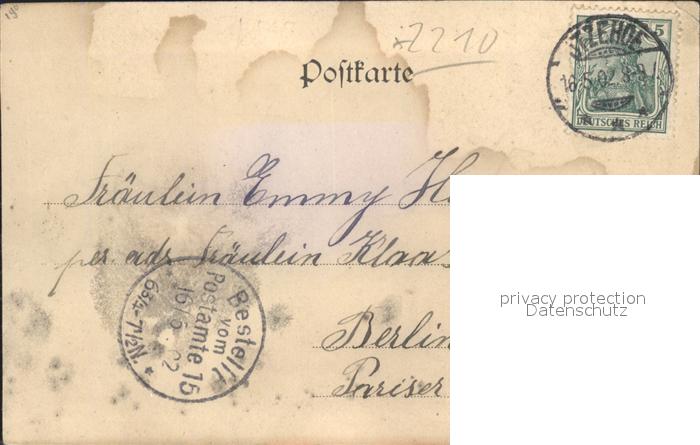 2210
Postkarte
5
DEUTSCHES REICH
ITZEHOE
16.5.02. 8-9V
Fräulein Emmy
per adr Fräulein Klaa
Bestellt
vom
Postamte 15
16/5 02
6¾-7½N.
Berlin
Pariser
privacy protection
Datenschutz